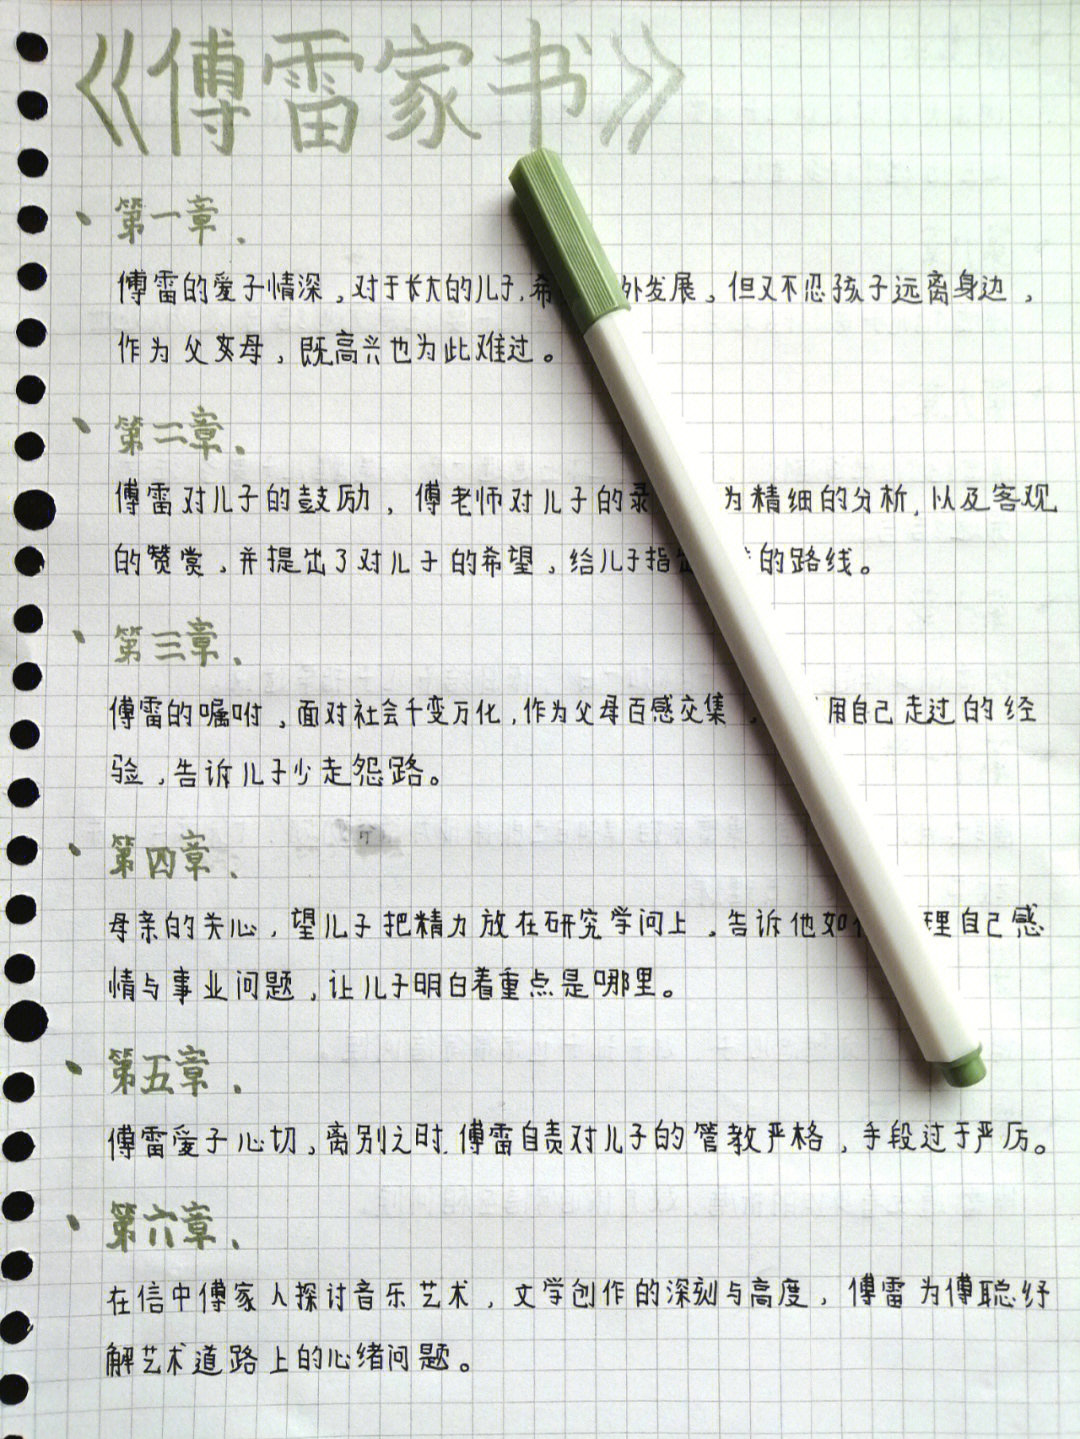 《傅雷家书》
第一章、
傅雷的爱子情深，对于长大的儿子，希 外发展，但又不忍孩子远离身边，
作为父亲母，既高兴也为此难过。
第二章、
傅雷对儿子的鼓励，傅老师对儿子的录 为精细的分析，以及客观
的赞赏，并提出了对儿子的希望，给儿子指 的路线。
第三章、
傅雷的嘱咐，面对社会千变万化，作为父母百感交集， 用自己走过的经
验，告诉儿子少走怨路。
第四章、
母亲的关心，望儿子把精力放在研究学问上，告诉他如 理自己感
情与事业问题，让儿子明白着重点是哪里。
第五章、
傅雷爱子心切，离别之时，傅雷自责对儿子的管教严格，手段过于严厉。
第六章、
在信中傅家人探讨音乐艺术，文学创作的深刻与高度，傅雷为傅聪纾
解艺术道路上的心绪问题。